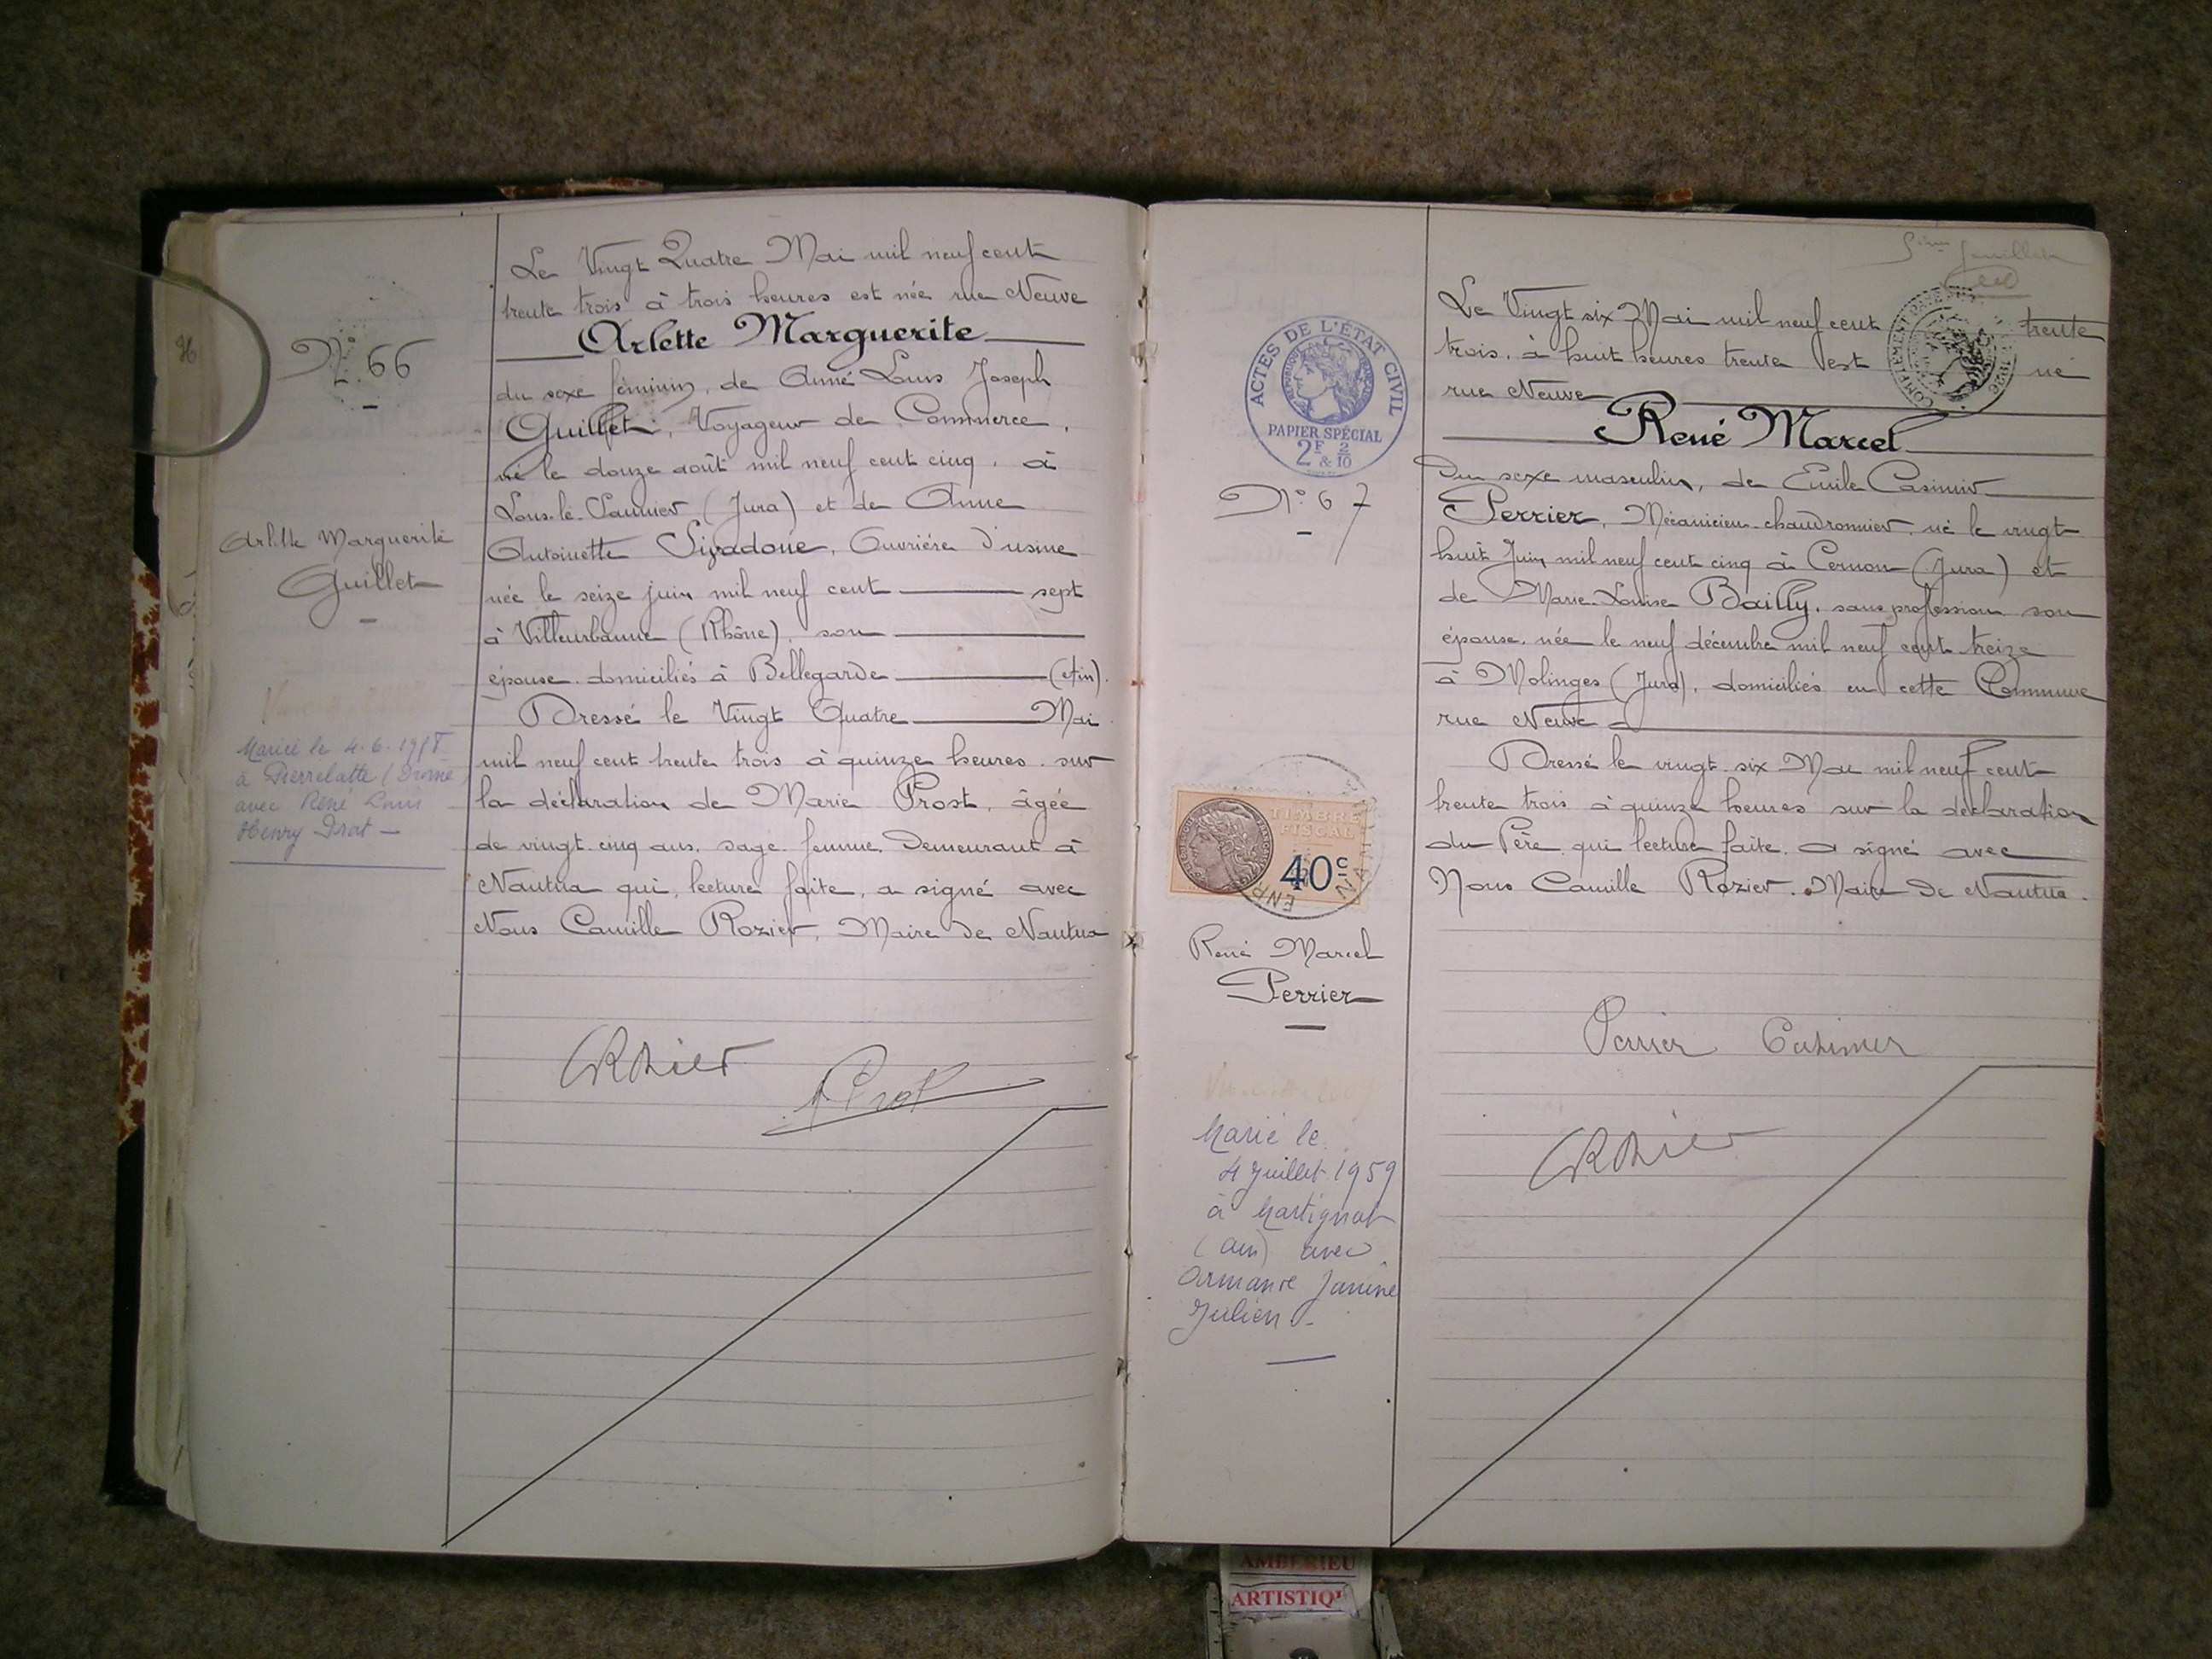 36
N° 66
Arlette Marguerite
Guillet
Mariée le 4.6.1958
à Pierrelatte (Drôme)
avec René Louis
Henry Drot
Le Vingt Quatre Mai mil neuf cent
trente trois à trois heures est née rue Neuve
Arlette Marguerite
du sexe féminin, de Aimé Louis Joseph
Guillet, Voyageur de Commerce,
né le douze août mil neuf cent cinq, à
Lons-le-Saunier (Jura) et de Anne
Antoinette Sivadone, Ouvrière d'usine
née le seize juin mil neuf cent sept
à Villeurbanne (Rhône), son
épouse. domiciliés à Bellegarde (Ain).
Dressé le Vingt Quatre Mai
mil neuf cent trente trois à quinze heures. sur
la déclaration de Marie Prost, âgée
de vingt-cinq ans, sage-femme, Demeurant à
Nantua qui, lecture faite, a signé avec
Nous Camille Rozier, Maire de Nantua
CRozier
M Prost
ACTES DE L'ÉTAT CIVIL
RÉPUBLIQUE FRANÇAISE
PAPIER SPÉCIAL
2F & 2/10
N° 67
TIMBRE
FISCAL
40c
René Marcel
Perrier
Marié le
4 Juillet 1959
à Martignat
(ain) avec
Armande Janine
Julien
5ème feuillet
Le Vingt six Mai mil neuf cent trente
trois, à huit heures trente est né
rue Neuve
René Marcel
Du sexe masculin, de Emile Casimir
Perrier, Mécanicien-chaudronnier né le vingt
huit Juin mil neuf cent cinq à Cernon (Jura) et
de Marie-Louise Bailly, sans profession son
épouse, née le neuf décembre mil neuf cent treize
à Molinges (Jura), domiciliés en cette Commune
rue Neuve
Dressé le vingt-six Mai mil neuf cent
trente trois à quinze heures sur la déclaration
du Père qui lecture faite a signé avec
Nous Camille Rozier. Maire de Nantua.
Perrier Casimir
CRozier
AMBERIEU
ARTISTIQU